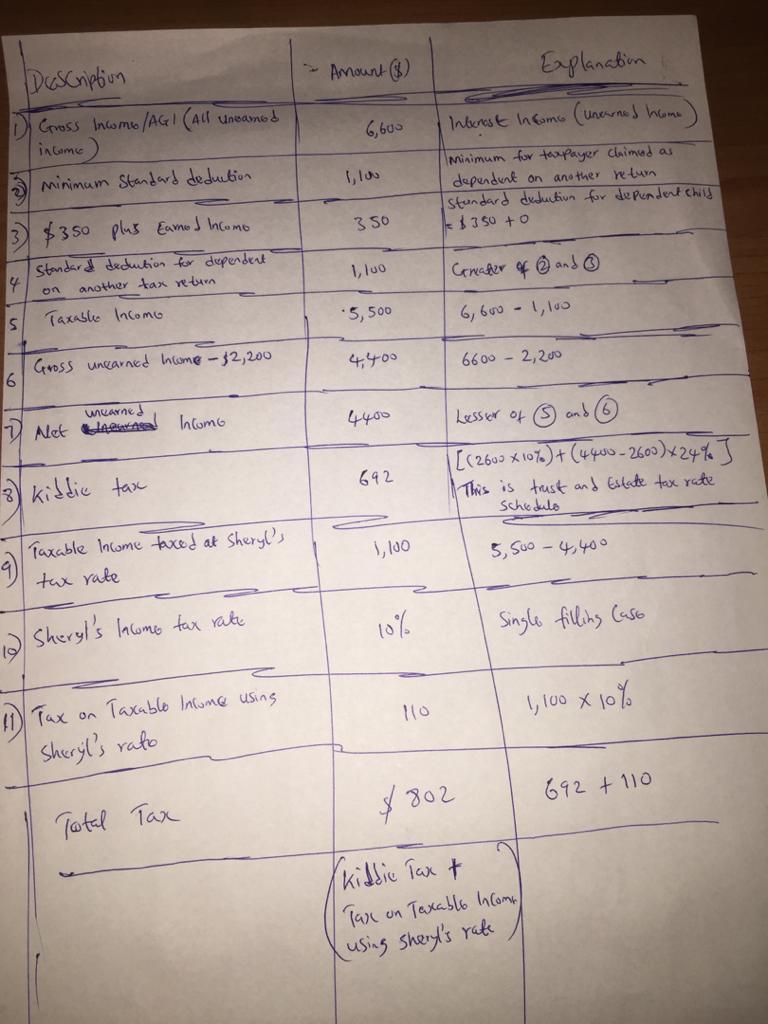 Description
Amount ($)
Explanation
1) Gross Income/AGI (All unearned
income)
6,600
Interest Income (unearned Income)
2) Minimum Standard deduction
1,100
Minimum for taxpayer claimed as
dependent on another return
3) $350 plus Earned Income
350
Standard deduction for dependent child
= $350 + 0
4 Standard deduction for dependent
on another tax return
1,100
Greater of ② and ③
5 Taxable Income
5,500
6,600 - 1,100
6 Gross unearned Income - $2,200
4,400
6600 - 2,200
7) Net unearned Income
4400
Lesser of ⑤ and ⑥
8) Kiddie tax
692
[(2600 x 10%) + (4400 - 2600) x 24%]
This is trust and Estate tax rate
schedule
9) Taxable Income taxed at Sheryl's
tax rate
1,100
5,500 - 4,400
10) Sheryl's Income tax rate
10%
Single filling Case
11) Tax on Taxable Income using
Sheryl's rate
110
1,100 x 10%
Total Tax
$ 802
692 + 110
(Kiddie Tax +
Tax on Taxable Income
using Sheryl's rate)